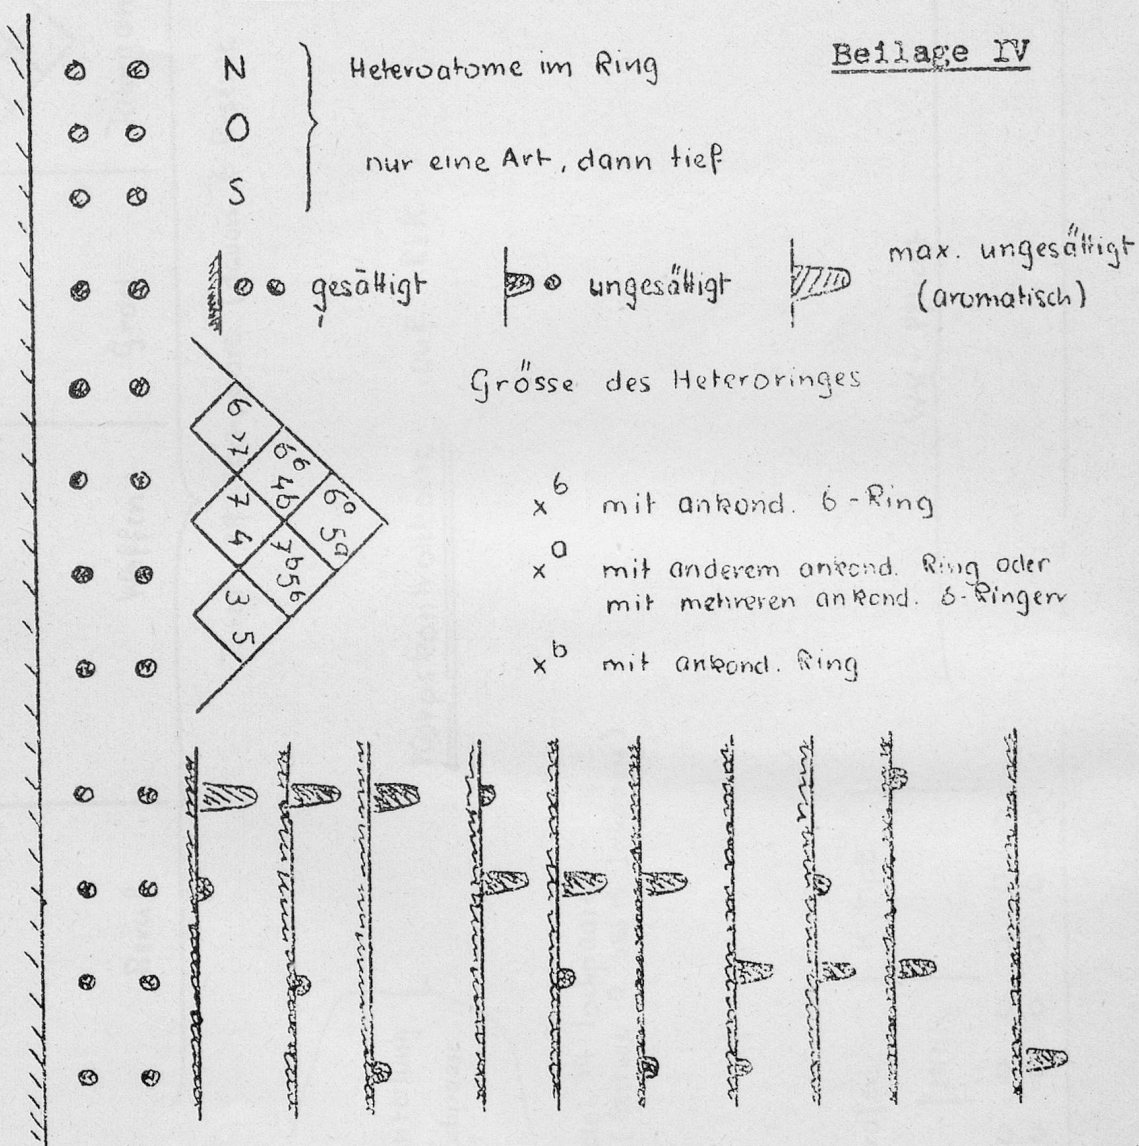 Beilage IV
N
O
S
Heteroatome im Ring
nur eine Art, dann tief
gesättigt
ungesättigt
max. ungesättigt
(aromatisch)
Grösse des Heteroringes
6 >7
6⁶ 4b
6ᵃ 5ᵃ
7 4
7ᵇ 5⁶
3 5
x⁶ mit ankond. 6-Ring
xᵃ mit anderem ankond. Ring oder
mit mehreren ankond. 6-Ringen
xᵇ mit ankond. Ring